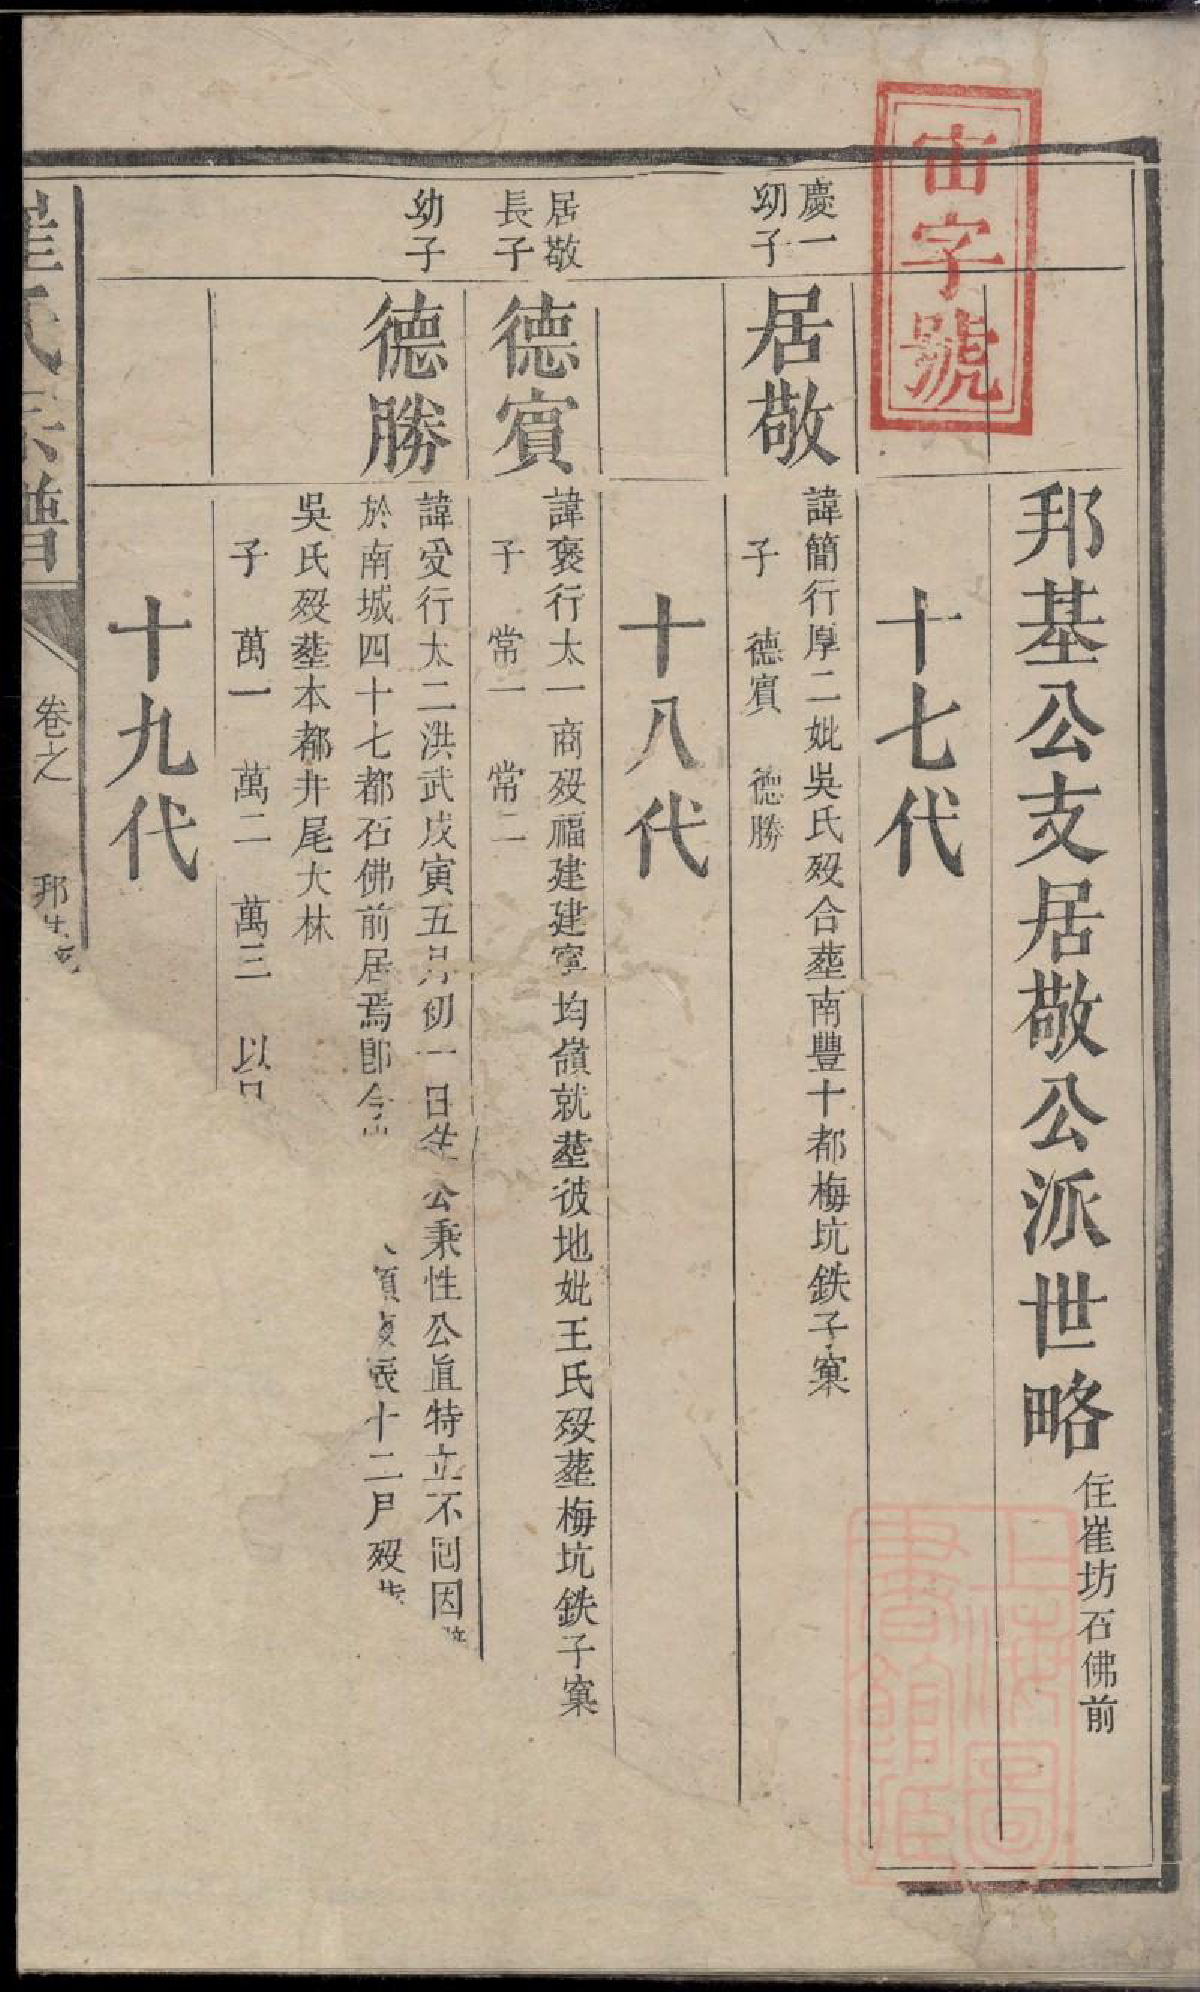 宙字號
邦基公支居敬公派世略
住崔坊石佛前
十七代
慶一
幼子
居敬
諱簡行厚二妣吳氏歿合塟南豐十都梅坑鉄子窠
子 德賔 德勝
十八代
居敬
長子
德賔
諱褒行太一商歿福建建寧均嶺就塟彼地妣王氏歿塟梅坑鉄子窠
子 常一 常二
幼子
德勝
諱受行太二洪武戊寅五月初一日生公秉性公直特立不囘因
於南城四十七都石佛前居焉卽今
張十二尸歿
吳氏歿塟本都井尾大林
子 萬一 萬二 萬三 以
十九代
崔氏宗譜
卷之
邦
上海圖書館藏